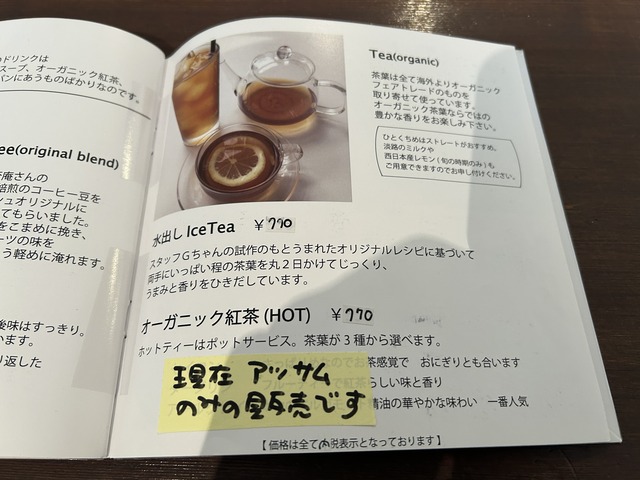 ドリンクは
スープ、オーガニック紅茶、
パンにあうものばかりなのです。
ee(original blend)
庵さんの
焙煎のコーヒー豆を
シュオリジナルに
てもらいました。
をこまめに挽き、
ーツの味を
う軽めに淹れます。
後味はすっきり。
います。
り返した
Tea(organic)
茶葉は全て海外よりオーガニック
フェアトレードのものを
取り寄せて使っています。
オーガニック茶葉ならではの
豊かな香りをお楽しみ下さい。
ひとくちめはストレートがおすすめ、
淡路のミルクや
西日本産レモン(旬の時期のみ)も
ご用意できますのでお申し付けください。
水出し IceTea ￥770
スタッフGちゃんの試作のもとうまれたオリジナルレシピに基づいて
両手にいっぱい程の茶葉を丸2日かけてじっくり、
うまみと香りをひきだしています。
オーガニック紅茶 (HOT) ￥770
ホットティーはポットサービス。茶葉が3種から選べます。
お茶感覚で おにぎりとも合います
で紅茶らしい味と香り
精油の華やかな味わい 一番人気
現在 アッサム
のみの販売です
【価格は全て内税表示となっております】